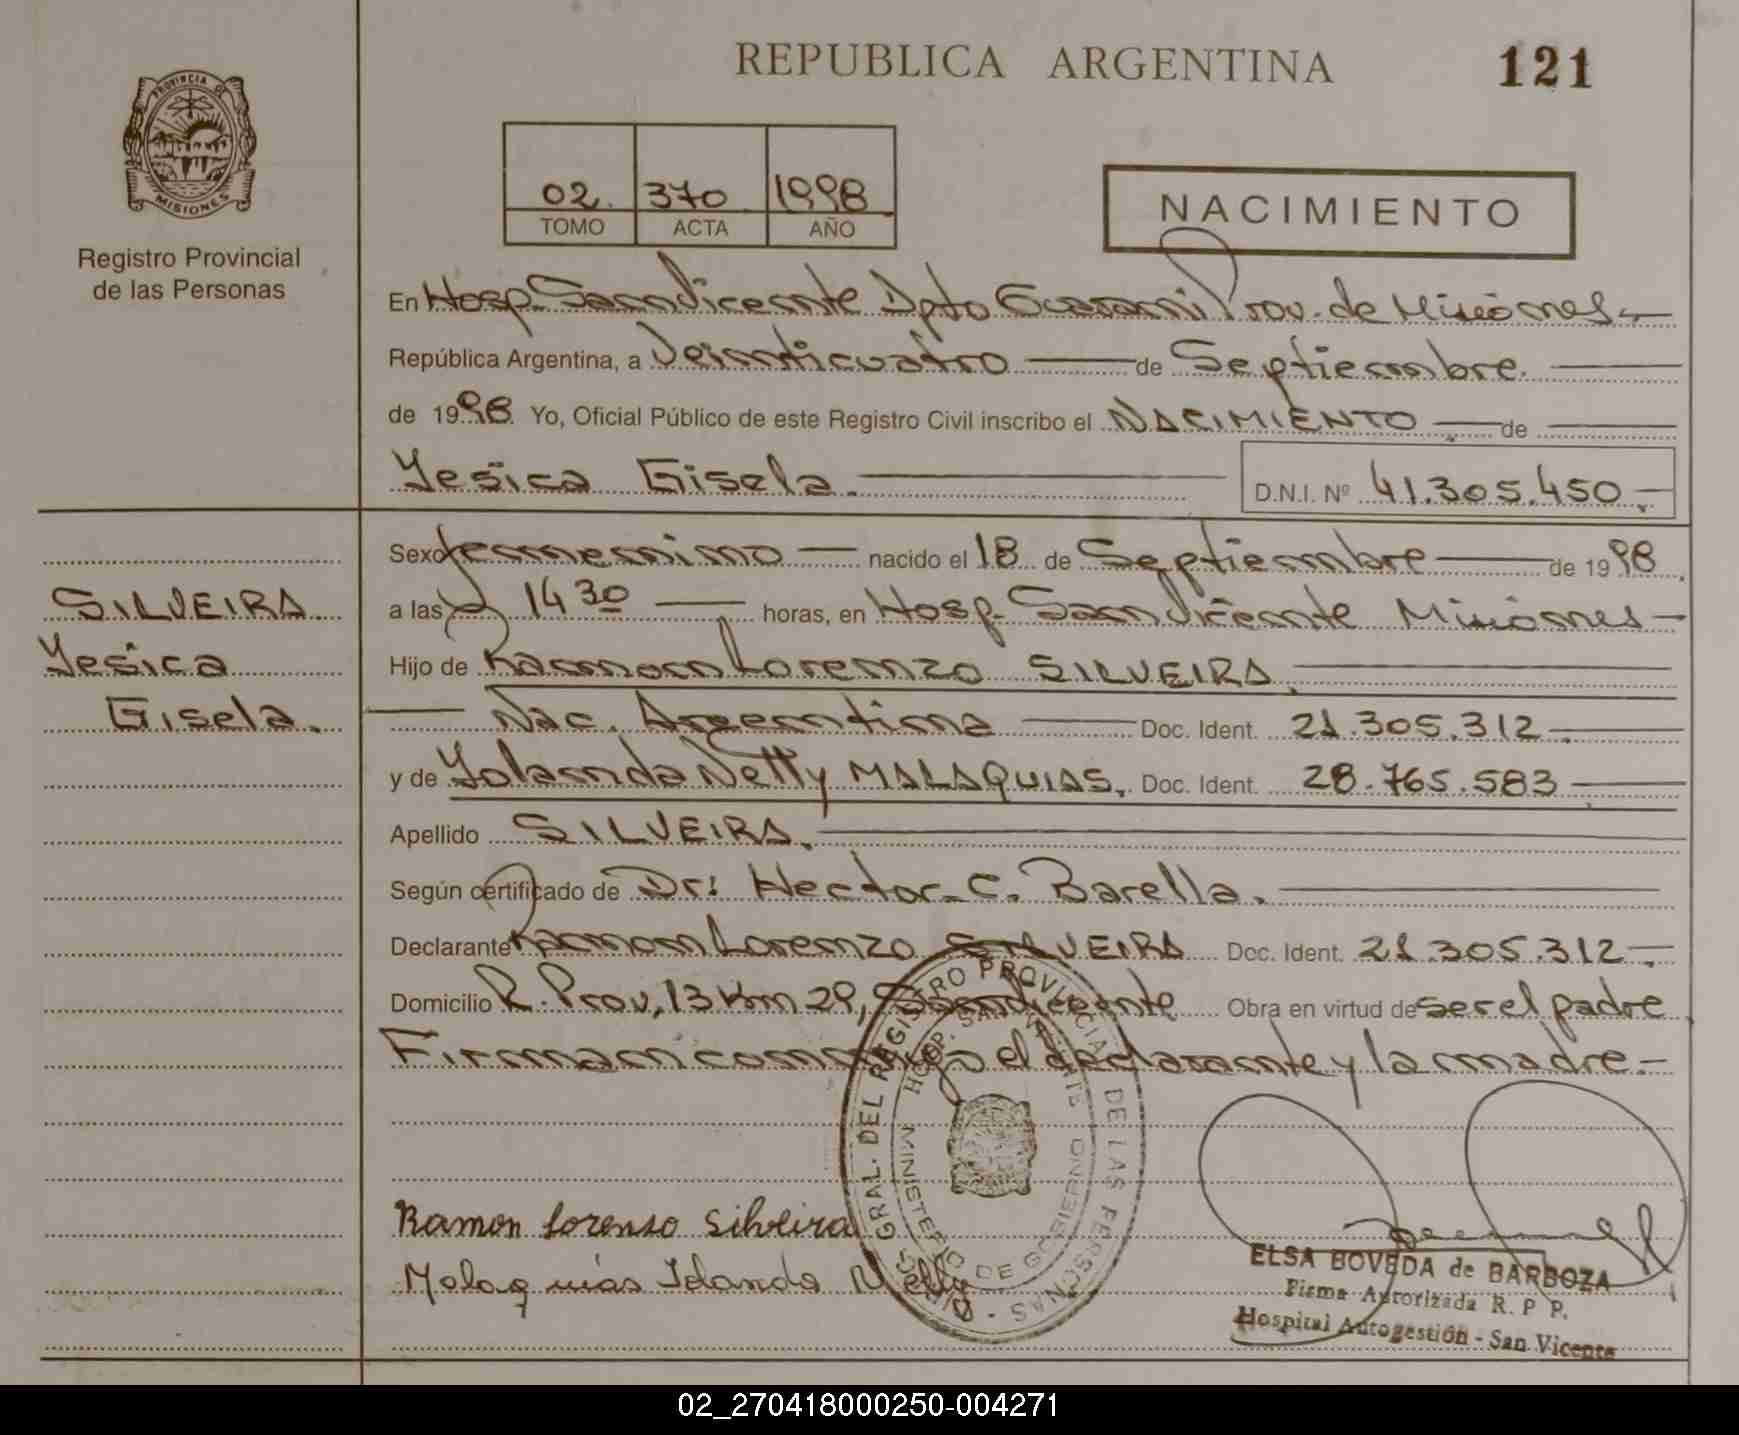 REPUBLICA ARGENTINA
121
PROVINCIA DE
MISIONES
Registro Provincial
de las Personas
02. 370 1998
TOMO ACTA AÑO
NACIMIENTO
En Hosp. San Vicente Dpto Guarani Prov. de Misiones.-
República Argentina, a Veinticuatro de Septiembre.
de 1998. Yo, Oficial Público de este Registro Civil inscribo el NACIMIENTO de
Yesica Gisela.
D.N.I. Nº 41.305.450.-
Sexo femenino nacido el 18 de Septiembre de 1998
a las 14 30 horas, en Hosp. San Vicente Misiones-
Hijo de Ramon Lorenzo SILVEIRA.
Nac. Argentina Doc. Ident. 21.305.312.
y de Yolanda Netty MALAQUIAS. Doc. Ident. 28.765.583
Apellido SILVEIRA.
Según certificado de Dr: Hector C. Barella.
Declarante Ramon Lorenzo SILVEIRA Doc. Ident. 21.305.312.
Domicilio R. Prov, 13 Km 29, San Vicente Obra en virtud de ser el padre
Firman conmigo el declarante y la madre.-
SILVEIRA.
Yesica
Gisela.
DIR. GRAL. DEL REGISTRO PROVINCIAL DE LAS PERSONAS -
HOSP. SAN VICENTE
MINISTERIO DE GOBIERNO
Ramon Lorenso Silveira
Malaquias Iolanda Netty
ELSA BOVEDA de BARBOZA
Firma Autorizada R. P P.
Hospital Autogestión - San Vicente
02_270418000250-004271